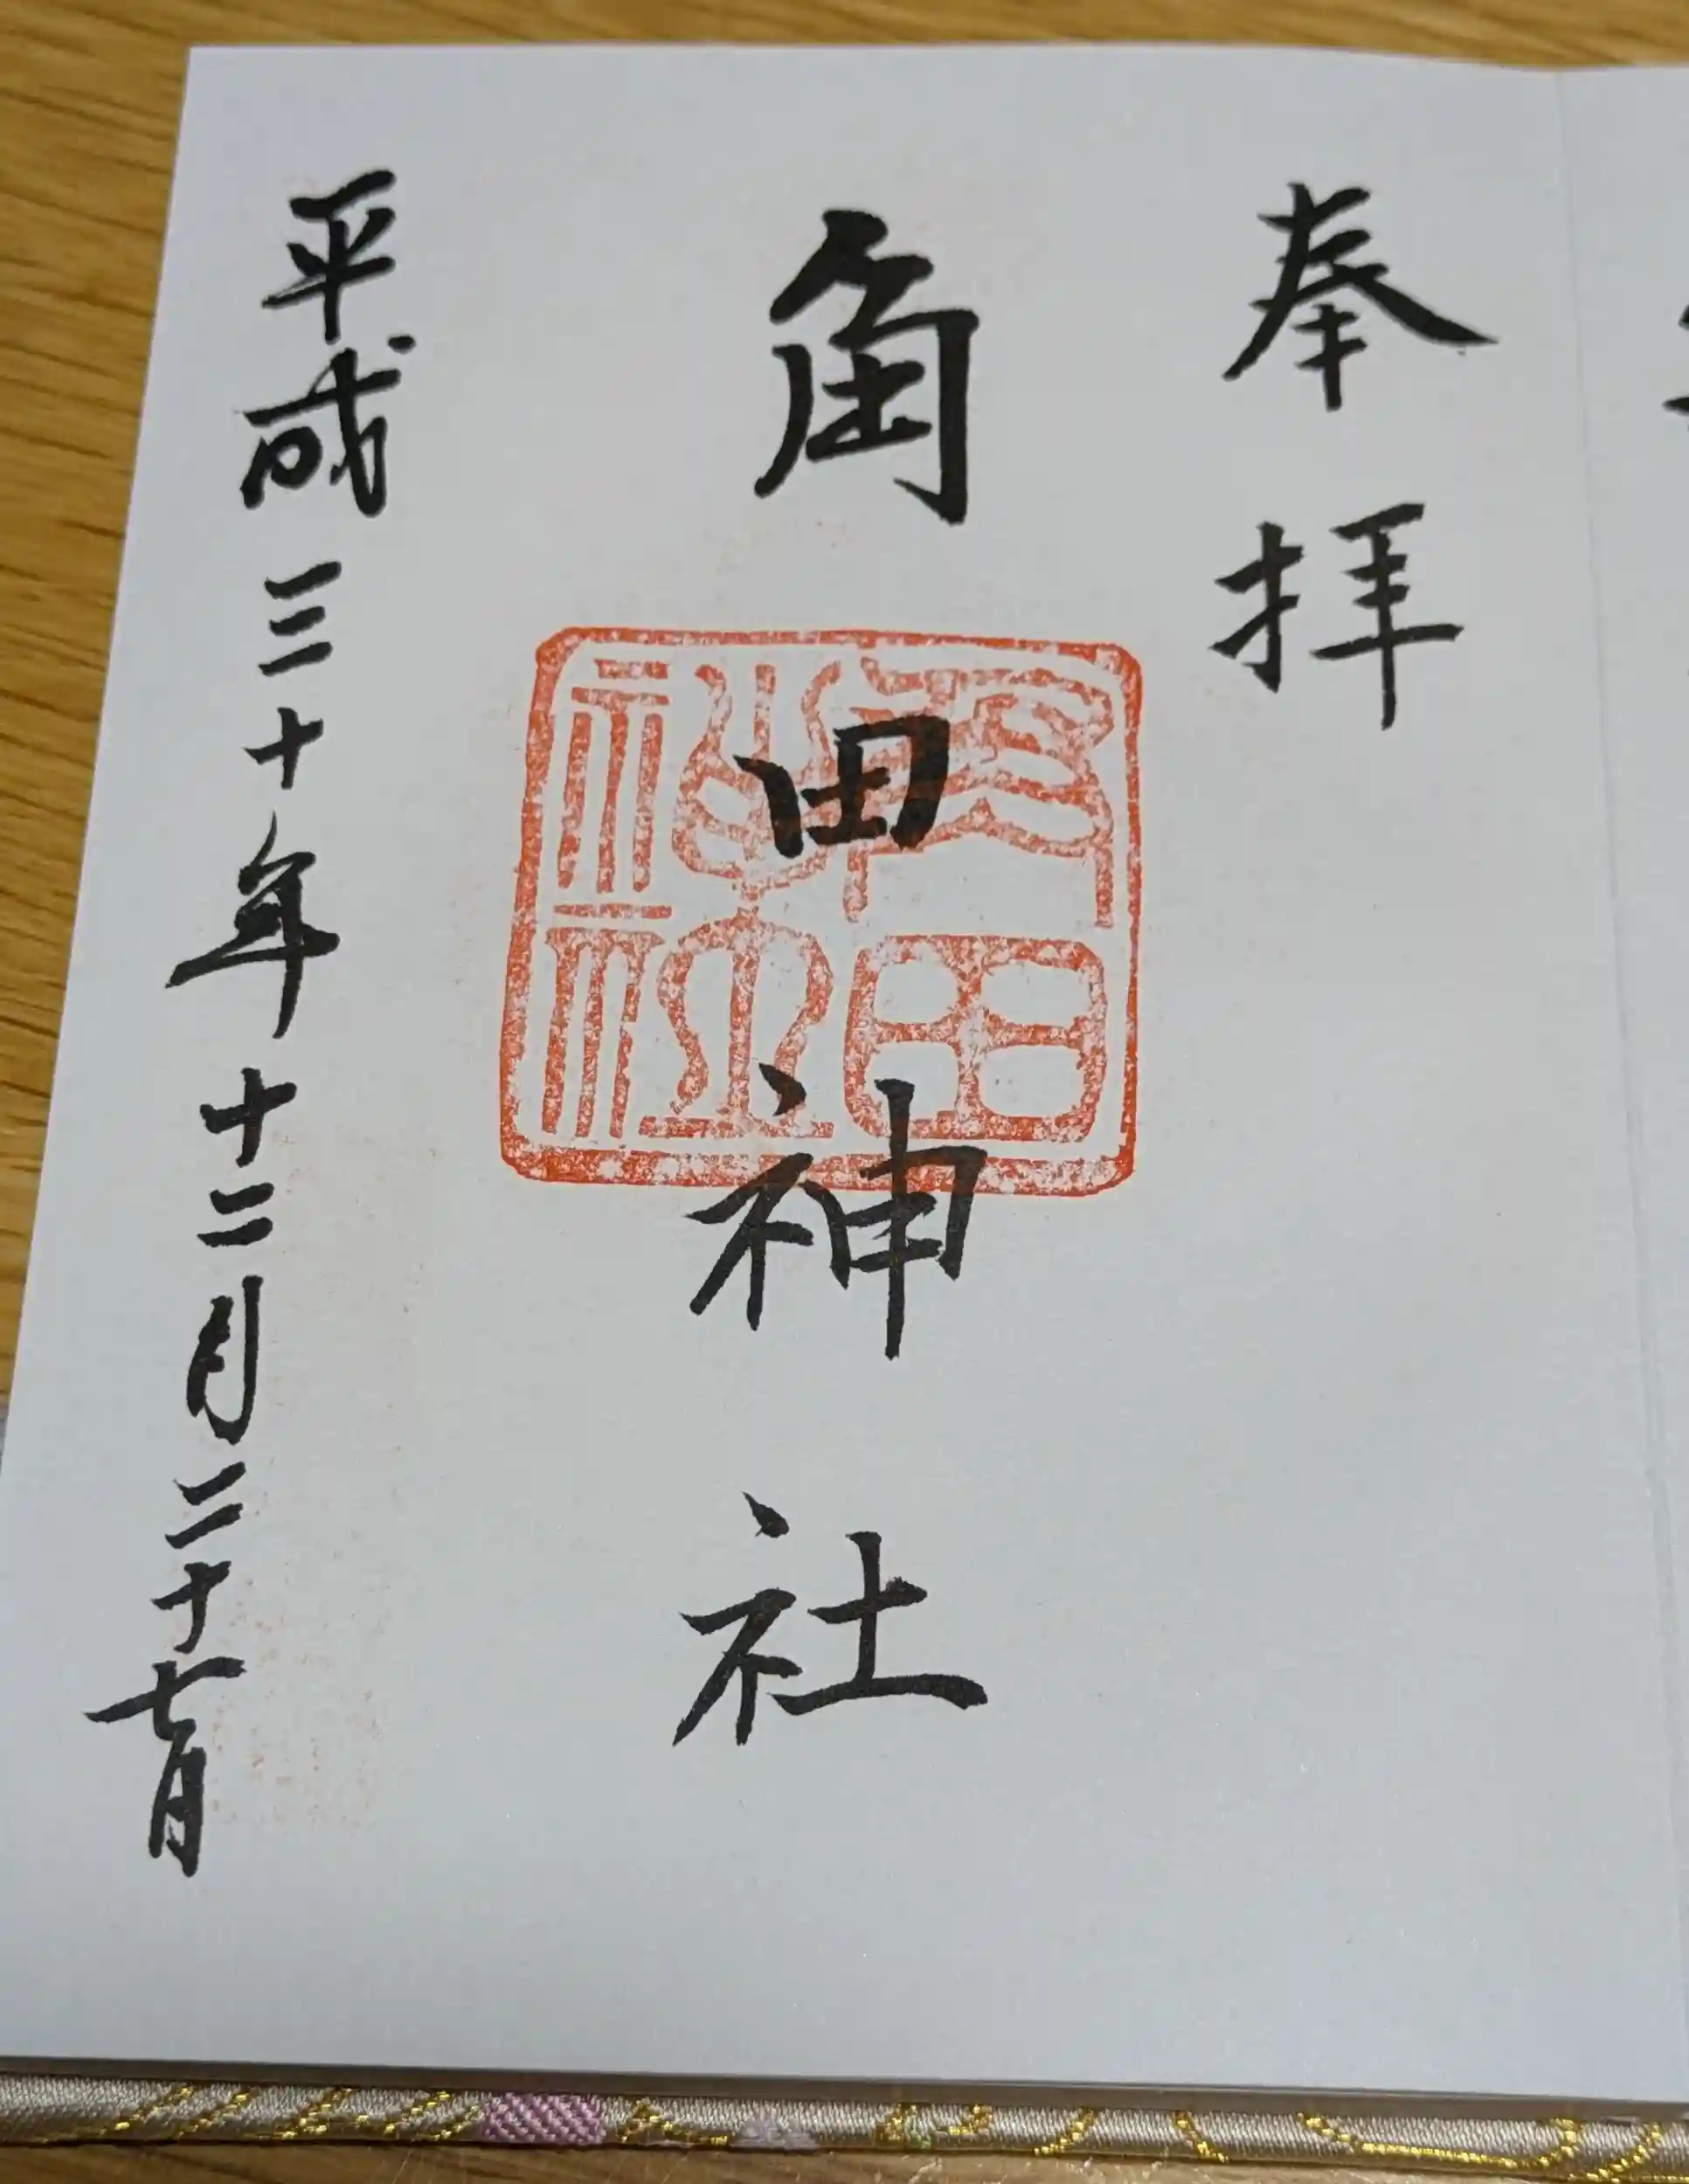 奉拝
角田神社
角田神社
平成三十年十二月二十七日